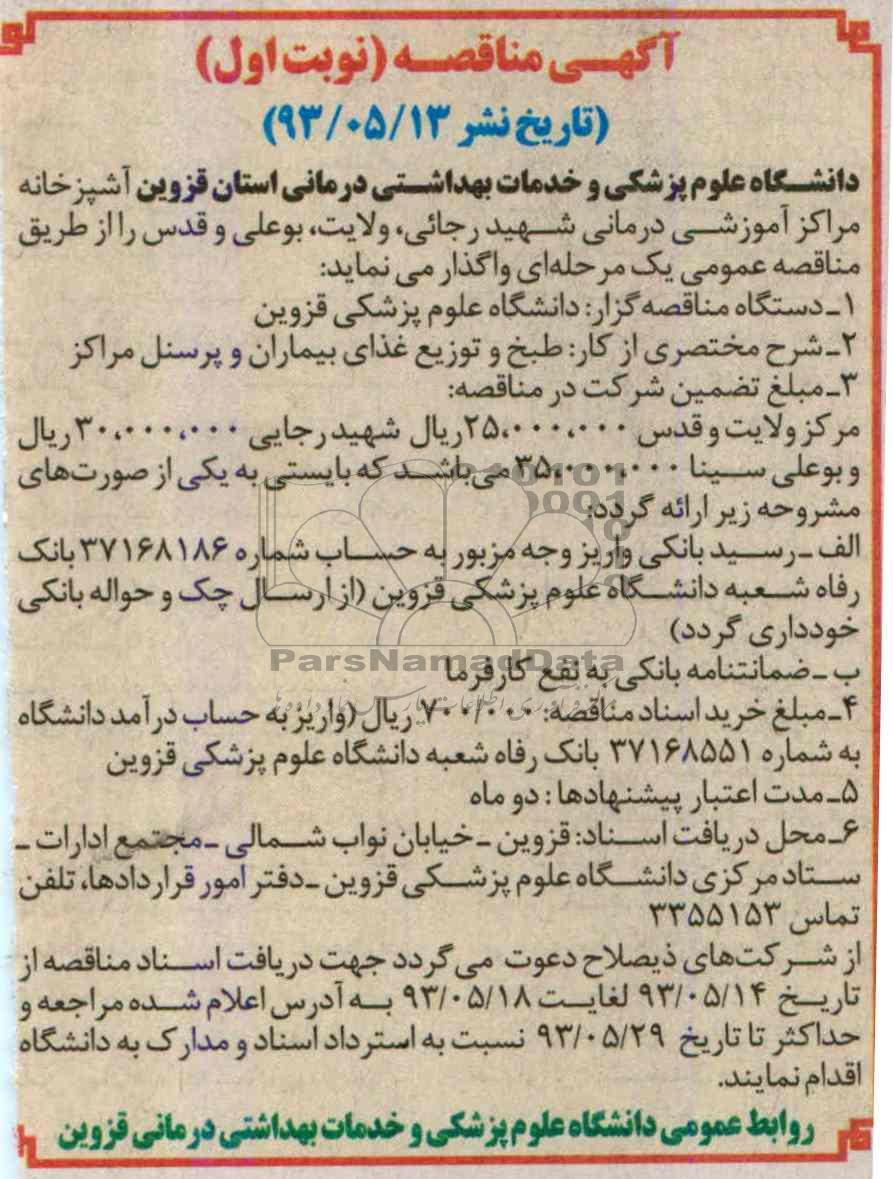 آگهی مناقصه (نوبت اول)
(تاریخ نشر ۹۳/۰۵/۱۳)
دانشگاه علوم پزشکی و خدمات بهداشتی درمانی استان قزوین آشپزخانه
مراکز آموزشی درمانی شهید رجائی، ولایت، بوعلی و قدس را از طریق
مناقصه عمومی یک مرحله‌ای واگذار می نماید:
۱ـ دستگاه مناقصه گزار: دانشگاه علوم پزشکی قزوین
۲ـ شرح مختصری از کار: طبخ و توزیع غذای بیماران و پرسنل مراکز
۳ـ مبلغ تضمین شرکت در مناقصه:
مرکز ولایت و قدس ۲۵،۰۰۰،۰۰۰ریال شهید رجایی ۳۰،۰۰۰،۰۰۰ریال
و بوعلی سینا ۳۵،۰۰۰،۰۰۰می‌باشد که بایستی به یکی از صورت‌های
مشروحه زیر ارائه گردد:
الف ـ رسید بانکی واریز وجه مزبور به حساب شماره ۳۷۱۶۸۱۸۶ بانک
رفاه شعبه دانشگاه علوم پزشکی قزوین (از ارسال چک و حواله بانکی
خودداری گردد)
ب ـ ضمانتنامه بانکی به نفع کارفرما
ParsNamadData
۴ـ مبلغ خرید اسناد مناقصه: ۷۰۰/۰۰۰ ریال (واریز به حساب درآمد دانشگاه
به شماره ۳۷۱۶۸۵۵۱ بانک رفاه شعبه دانشگاه علوم پزشکی قزوین
۵ـ مدت اعتبار پیشنهادها : دو ماه
۶ـ محل دریافت اسناد: قزوین ـ خیابان نواب شمالی ـ مجتمع ادارات ـ
ستاد مرکزی دانشگاه علوم پزشکی قزوین ـ دفتر امور قراردادها، تلفن
تماس ۳۳۵۵۱۵۳
از شرکت‌های ذیصلاح دعوت می گردد جهت دریافت اسناد مناقصه از
تاریخ ۹۳/۰۵/۱۴ لغایت ۹۳/۰۵/۱۸ به آدرس اعلام شده مراجعه و
حداکثر تا تاریخ ۹۳/۰۵/۲۹ نسبت به استرداد اسناد و مدارک به دانشگاه
اقدام نمایند.
روابط عمومی دانشگاه علوم پزشکی و خدمات بهداشتی درمانی قزوین